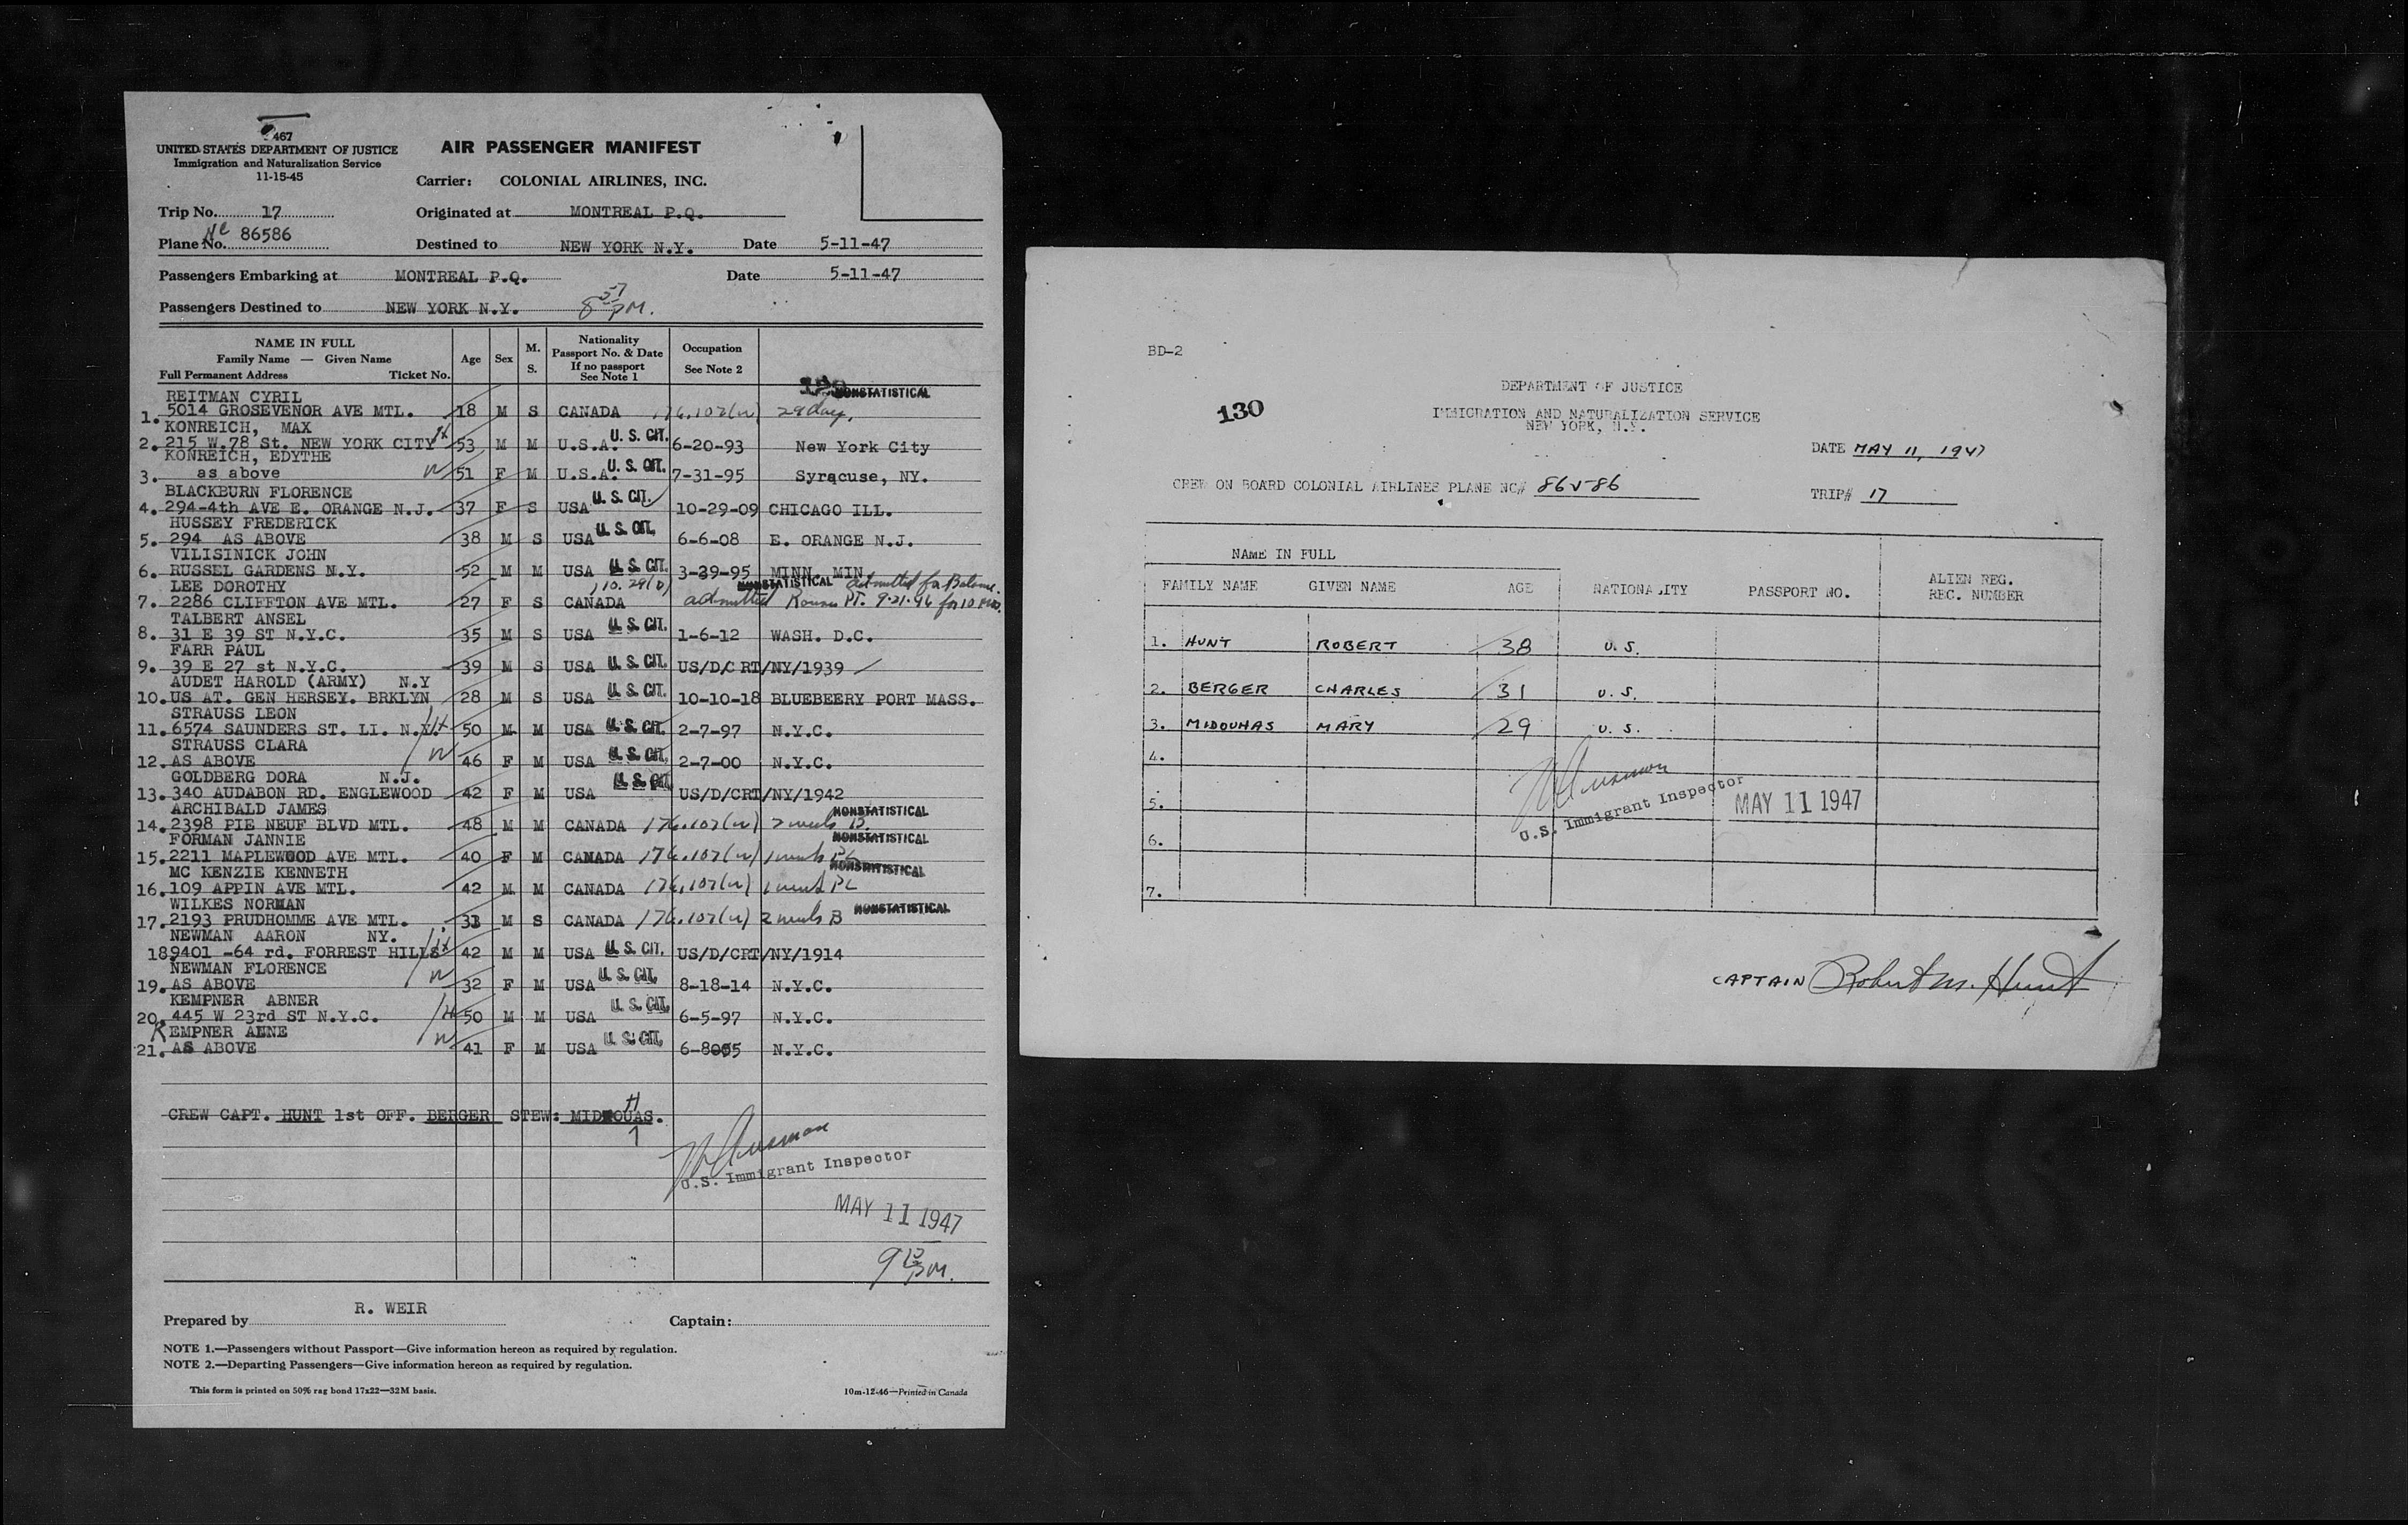 467
UNITED STATES DEPARTMENT OF JUSTICE
Immigration and Naturalization Service
11-15-45
AIR PASSENGER MANIFEST
Carrier: COLONIAL AIRLINES, INC.
Trip No. 17
Originated at MONTREAL P.Q.
Plane No. NC 86586
Destined to NEW YORK N.Y. Date 5-11-47
Passengers Embarking at MONTREAL P.Q. Date 5-11-47
Passengers Destined to NEW YORK N.Y. 8 57 PM.
NAME IN FULL
Family Name — Given Name
Full Permanent Address Ticket No.
Age
Sex
M. S.
Nationality
Passport No. & Date
If no passport
See Note 1
Occupation
See Note 2
REITMAN CYRIL NONSTATISTICAL
1. 5014 GROSEVENOR AVE MTL. 18 M S CANADA 176.107(w) 29 days,
KONREICH, MAX
2. 215 W.78 St. NEW YORK CITY 53 M M U.S.A. U. S. CIT. 6-20-93 New York City
KONREICH, EDYTHE
3. as above W 51 F M U.S.A. U. S. CIT. 7-31-95 Syracuse, NY.
BLACKBURN FLORENCE
4. 294-4th AVE E. ORANGE N.J. 37 F S USA U. S. CIT. 10-29-09 CHICAGO ILL.
HUSSEY FREDERICK
5. 294 AS ABOVE 38 M S USA U. S. CIT. 6-6-08 E. ORANGE N.J.
VILISINICK JOHN
6. RUSSEL GARDENS N.Y. 52 M M USA U. S. CIT. 3-29-95 MINN. MIN
LEE DOROTHY NONSTATISTICAL admitted for Balance.
7. 2286 CLIFFTON AVE MTL. 27 F S CANADA admitted Rouses PT. 9-21-46 for 10 mos.
TALBERT ANSEL
8. 31 E 39 ST N.Y.C. 35 M S USA U. S. CIT. 1-6-12 WASH. D.C.
FARR PAUL
9. 39 E 27 st N.Y.C. 39 M S USA U. S. CIT. US/D/CRT/NY/1939
AUDET HAROLD (ARMY) N.Y
10. US AT. GEN HERSEY. BRKLYN 28 M S USA U. S. CIT. 10-10-18 BLUEBEERY PORT MASS.
STRAUSS LEON
11. 6574 SAUNDERS ST. LI. N.Y. H 50 M M USA U. S. CIT. 2-7-97 N.Y.C.
STRAUSS CLARA
12. AS ABOVE W 46 F M USA U. S. CIT. 2-7-00 N.Y.C.
GOLDBERG DORA N.J.
13. 340 AUDABON RD. ENGLEWOOD 42 F M USA U. S. CIT. US/D/CRT/NY/1942
ARCHIBALD JAMES NONSTATISTICAL
14. 2398 PIE NEUF BLVD MTL. 48 M M CANADA 176.107(w) 2 weeks B.
FORMAN JANNIE NONSTATISTICAL
15. 2211 MAPLEWOOD AVE MTL. 40 F M CANADA 176.107(w) 1 week PL
MC KENZIE KENNETH NONSTATISTICAL
16. 109 APPIN AVE MTL. 42 M M CANADA 176.107(w) 1 week PL
WILKES NORMAN
17. 2193 PRUDHOMME AVE MTL. 33 M S CANADA 176.107(w) 2 weeks B NONSTATISTICAL
NEWMAN AARON NY.
18 9401 -64 rd. FORREST HILLS H 42 M M USA U. S. CIT. US/D/CRT/NY/1914
NEWMAN FLORENCE
19. AS ABOVE W 32 F M USA U. S. CIT. 8-18-14 N.Y.C.
KEMPNER ABNER
20. 445 W 23rd ST N.Y.C. H 50 M M USA U. S. CIT. 6-5-97 N.Y.C.
KEMPNER ANNE
21. AS ABOVE W 41 F M USA U. S. CIT. N.Y.C.
CREW CAPT. HUNT 1st OFF. BERGER STEW: MIDOUHAS.
U.S. Immigrant Inspector
MAY 11 1947
PM.
Prepared by R. WEIR
Captain:
NOTE 1.—Passengers without Passport—Give information hereon as required by regulation.
NOTE 2.—Departing Passengers—Give information hereon as required by regulation.
This form is printed on 50% rag bond 17x22—32M basis.
10m-12-46—Printed in Canada
BD-2
DEPARTMENT OF JUSTICE
130
IMMIGRATION AND NATURALIZATION SERVICE
NEW YORK, N.Y.
DATE MAY 11, 1947
CREW ON BOARD COLONIAL AIRLINES PLANE NC# 86586
TRIP# 17
NAME IN FULL
FAMILY NAME GIVEN NAME AGE NATIONALITY PASSPORT NO. ALIEN REG. REC. NUMBER
1. HUNT ROBERT 38 U.S.
2. BERGER CHARLES 31 U.S.
3. MIDOUHAS MARY 29 U.S.
4.
5.
U.S. Immigrant Inspector
MAY 11 1947
6.
7.
CAPTAIN Robert M. Hunt